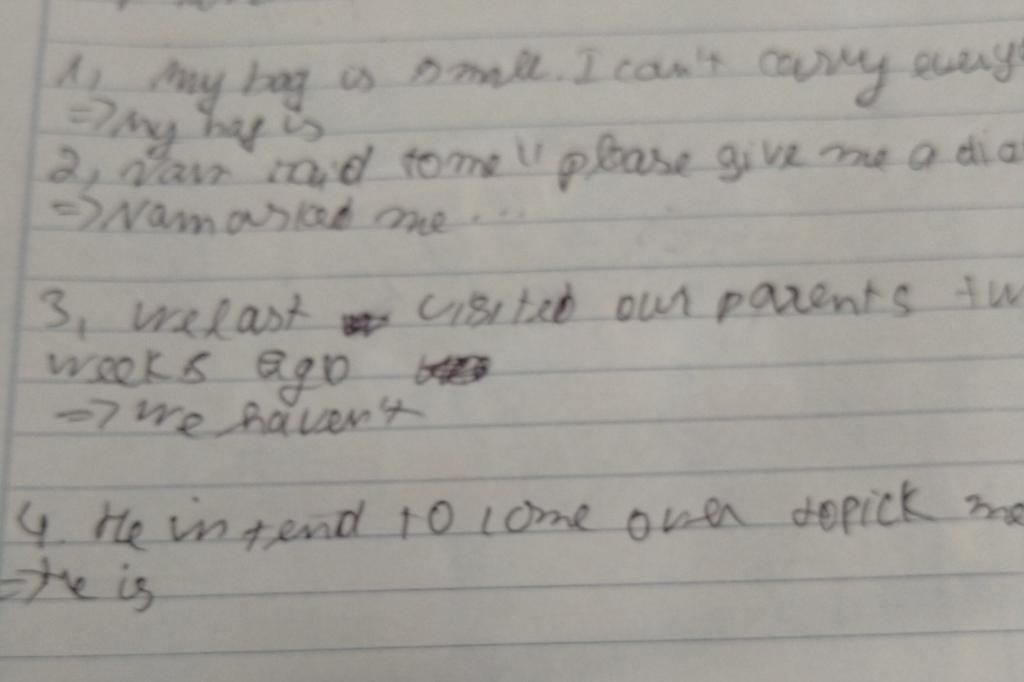 1, My bag is small. I can't carry every
=> My bag is
2, Nam said to me " please give me a dic
=> Nam asked me ...
3, we last visited our parents tw
weeks ago
=> we haven't
4. He intend to come over to pick me
=> He is